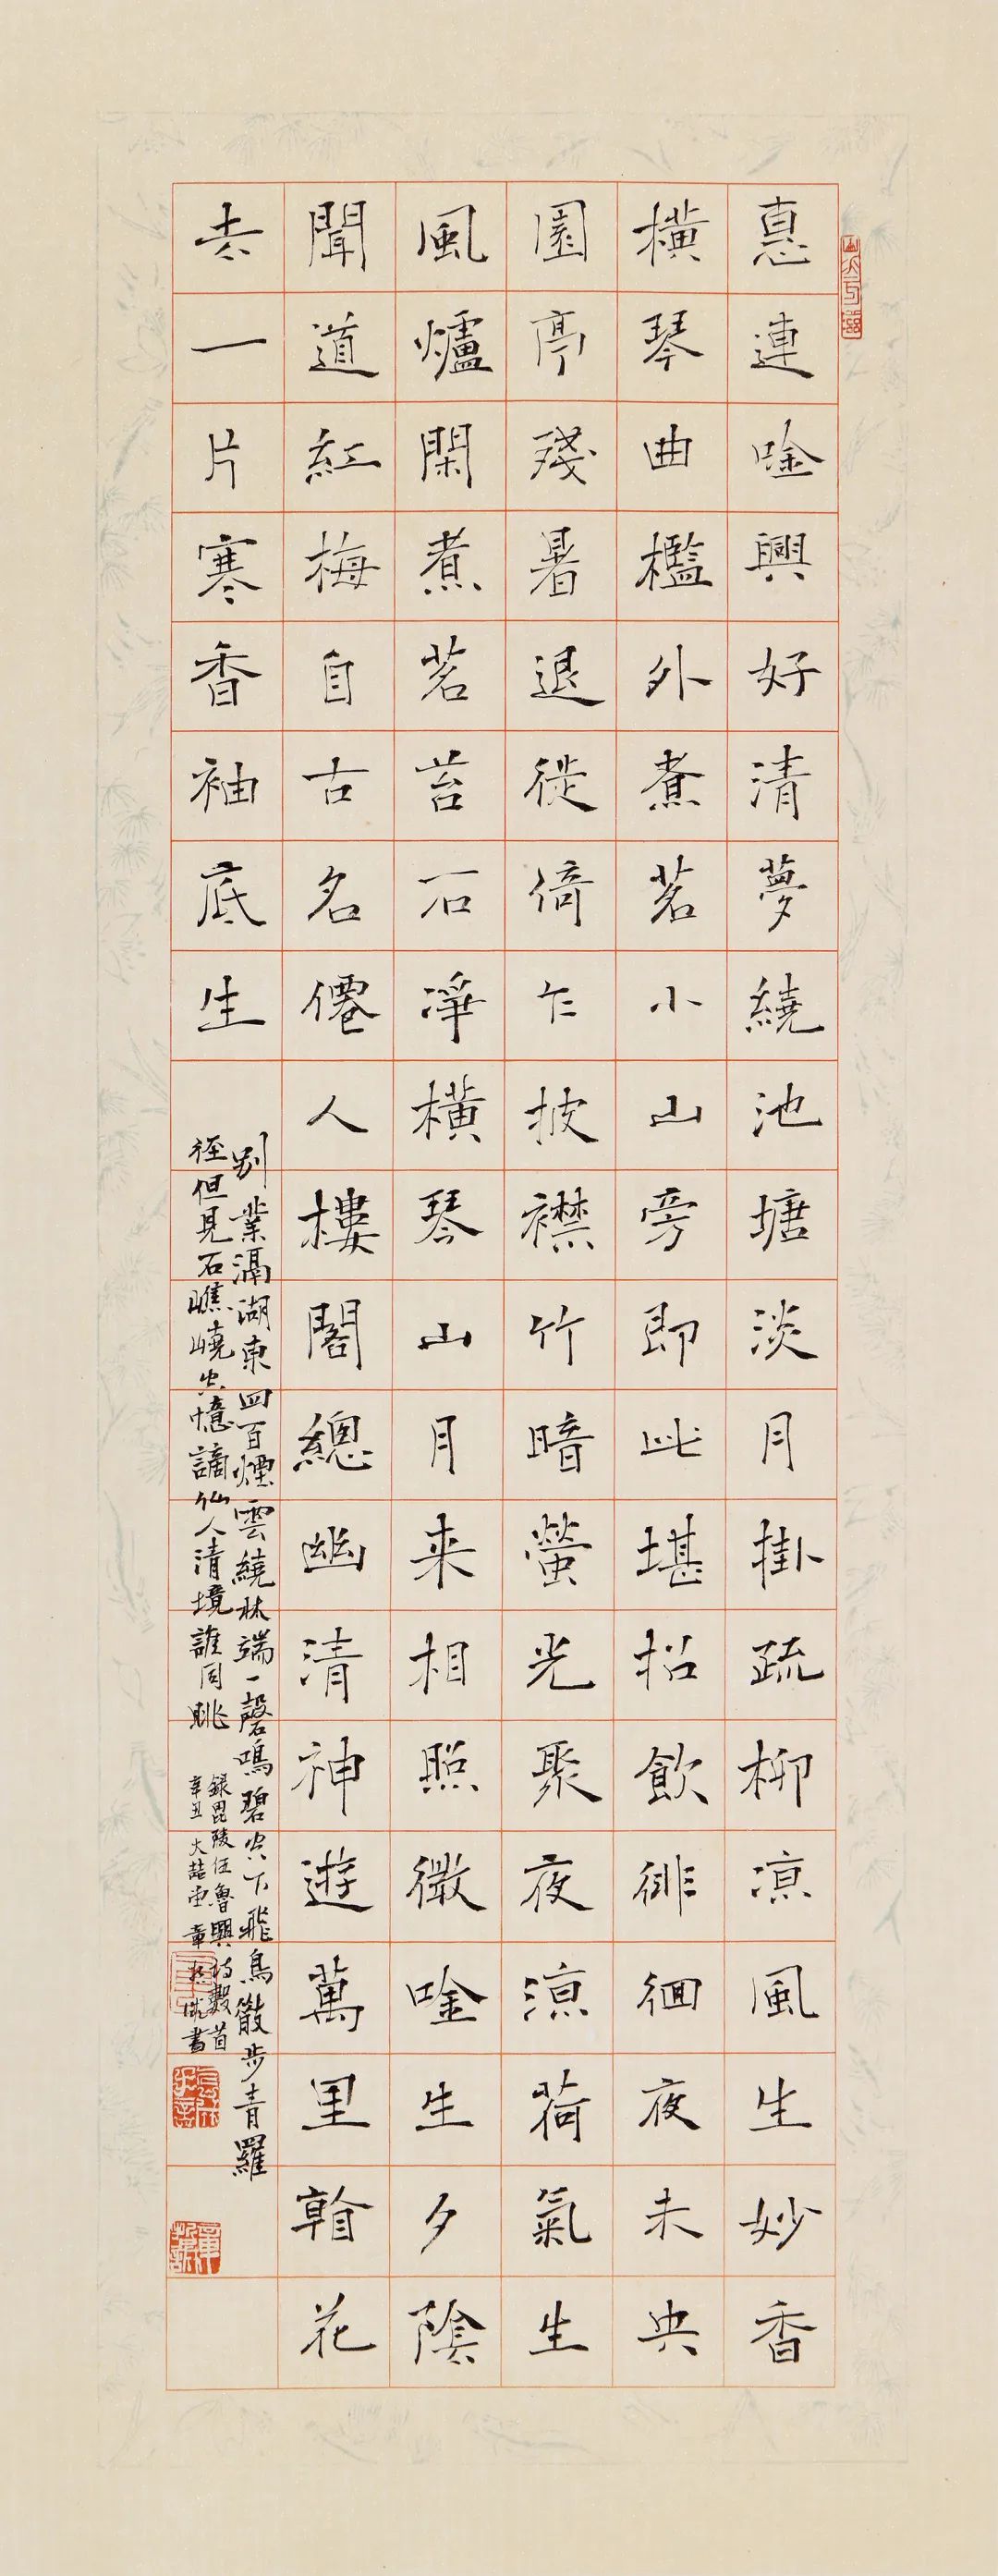 惪連唫興好清夢繞池塘淡月掛疏柳涼風生妙香
橫琴曲檻外煮茗小山旁即此堪招飲徘徊夜未央
園亭殘暑退徙倚乍披襟竹暗螢光聚夜涼荷氣生
風爐閑煮茗苔石淨橫琴山月来相照微唫生夕陰
聞道紅梅自古名僊人樓閣總幽清神遊萬里翰花
去一片寒香袖底生
別業滆湖東四百煙雲繞林端一磬鳴碧空下飛鳥散步青羅
徑但見石瞧嶢忽憶謫仙人清境誰同眺
錄毘陵伍魯興詩數首
辛丑大喆堂章書